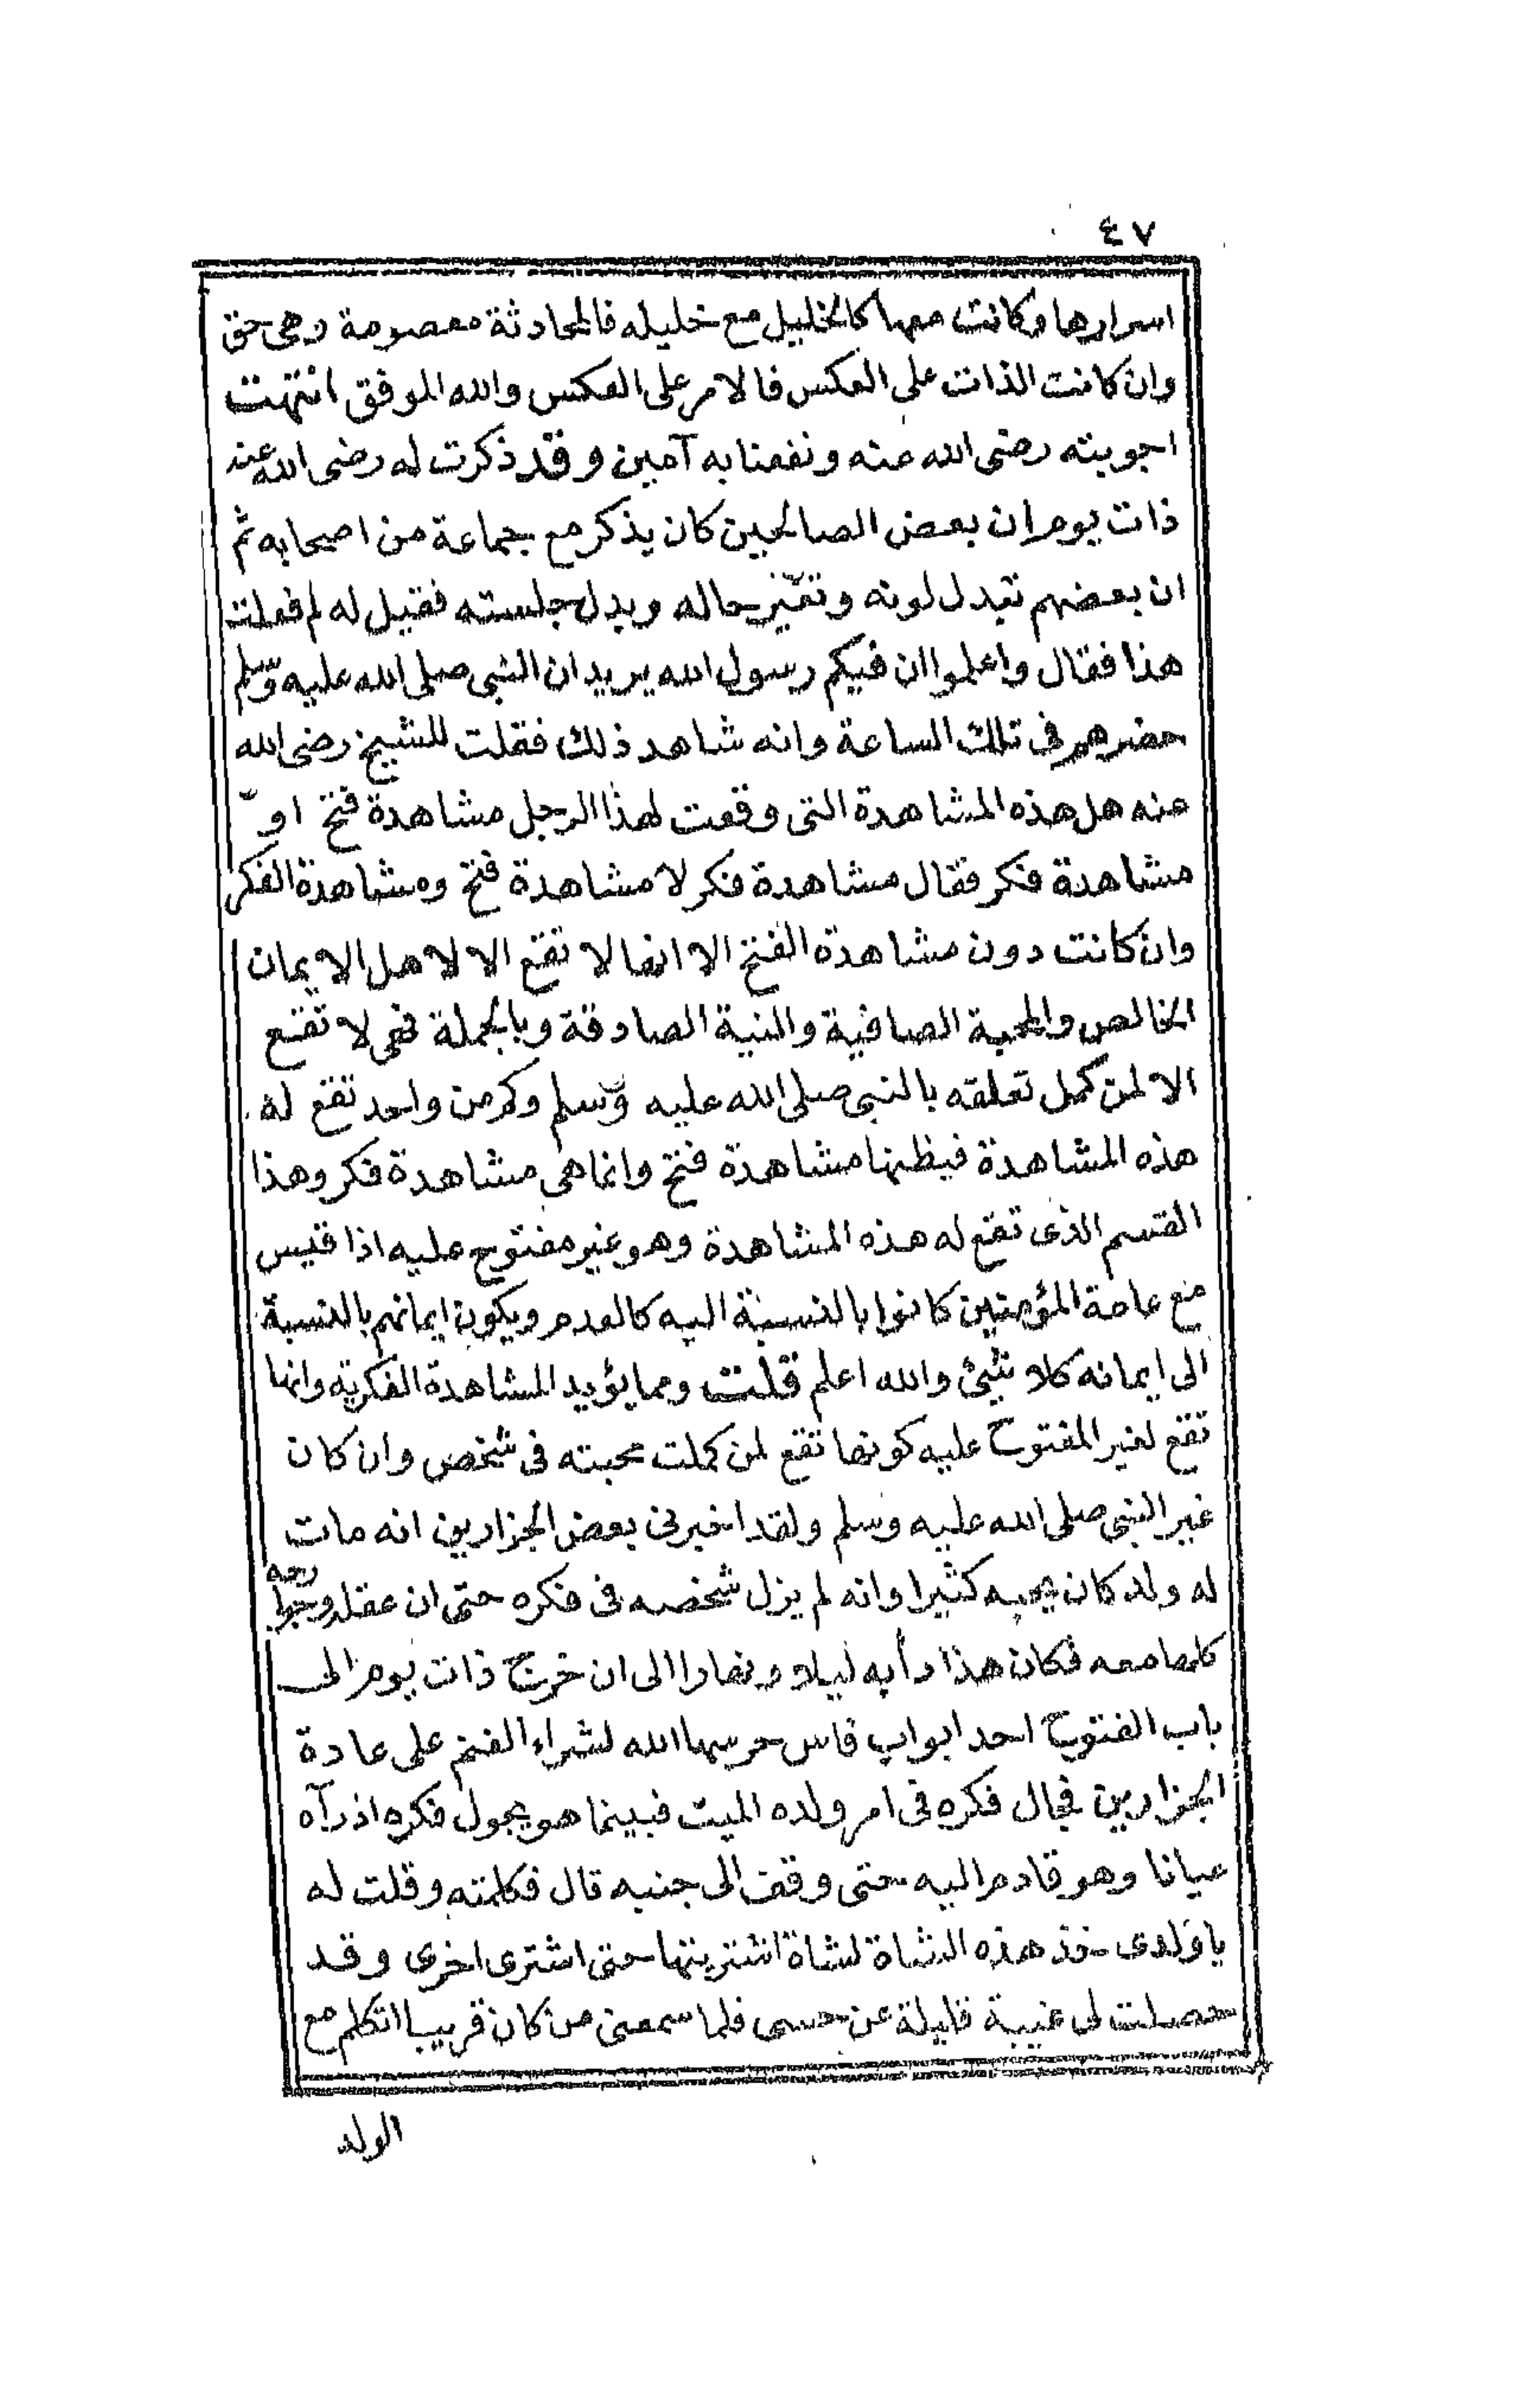 ٤٧
اسرارها وكانت معها كالخليل مع خليله فالمحادثة معصومة وهى حق
وان كانت الذات على العكس فالامر على العكس والله الموفق انتهت
اجوبته رضى الله عنه ونفعنا به آمين وقد ذكرت له رضى الله عنه
ذات يوم ان بعض الصالحين كان يذكر مع جماعة من اصحابه ثم
ان بعضهم تبدل لونه وتغيّر حاله وبدل جلسته فقيل له لم فعلت
هذا فقال واعلموا ان فيكم رسول الله يريد ان النبى صلى الله عليه وسلم
حضرهم فى تلك الساعة وانه شاهد ذلك فقلت للشيخ رضى الله
عنه هل هذه المشاهدة التى وقعت لهذا الرجل مشاهدة فتح او
مشاهدة فكر فقال مشاهدة فكر لا مشاهدة فتح ومشاهدة الفكر
وان كانت دون مشاهدة الفتح الا انها لا تقع الا لاهل الايمان
الخالص والمحبة الصافية والنية الصادقة وبالجملة فهى لا تقع
الا لمن كمل تعلقه بالنبى صلى الله عليه وسلم وكم من واحد تقع له
هذه المشاهدة فيظنها مشاهدة فتح وانما هى مشاهدة فكر وهذا
القسم الذى تقع له هذه المشاهدة وهو غير مفتوح عليه اذا قيس
مع عامة المؤمنين كانوا بالنسبة اليه كالعدم ويكون ايمانهم بالنسبة
الى ايمانه كلا شيئ والله اعلم قلت ومما يؤيد المشاهدة الفكرية وانها
تقع لغير المفتوح عليه كونها تقع لمن كملت محبته فى شخص وان كان
غير النبى صلى الله عليه وسلم ولقد اخبرنى بعض الجزارين انه مات
له ولد كان يحبه كثيرا وانه لم يزل شخصه فى فكره حتى ان عقله وجوارحه
كلها معه فكان هذا دأبه ليلا ونهارا الى ان خرج ذات يوم الى
باب الفتوح احد ابواب فاس حرسها الله لشراء الغنم على عادة
الجزارين فجال فكره فى امر ولده الميت فبينما هو يجول فكره اذ رآه
عيانا وهو قادم اليه حتى وقف الى جنبه قال فكلمته وقلت له
يا ولدى خذ هذه الشاة لشاة اشتريتها حتى اشترى اخرى وقد
حصلت لى غيبة قليلة عن حسى فلما سمعنى من كان قريبا اتكلم مع
الولد